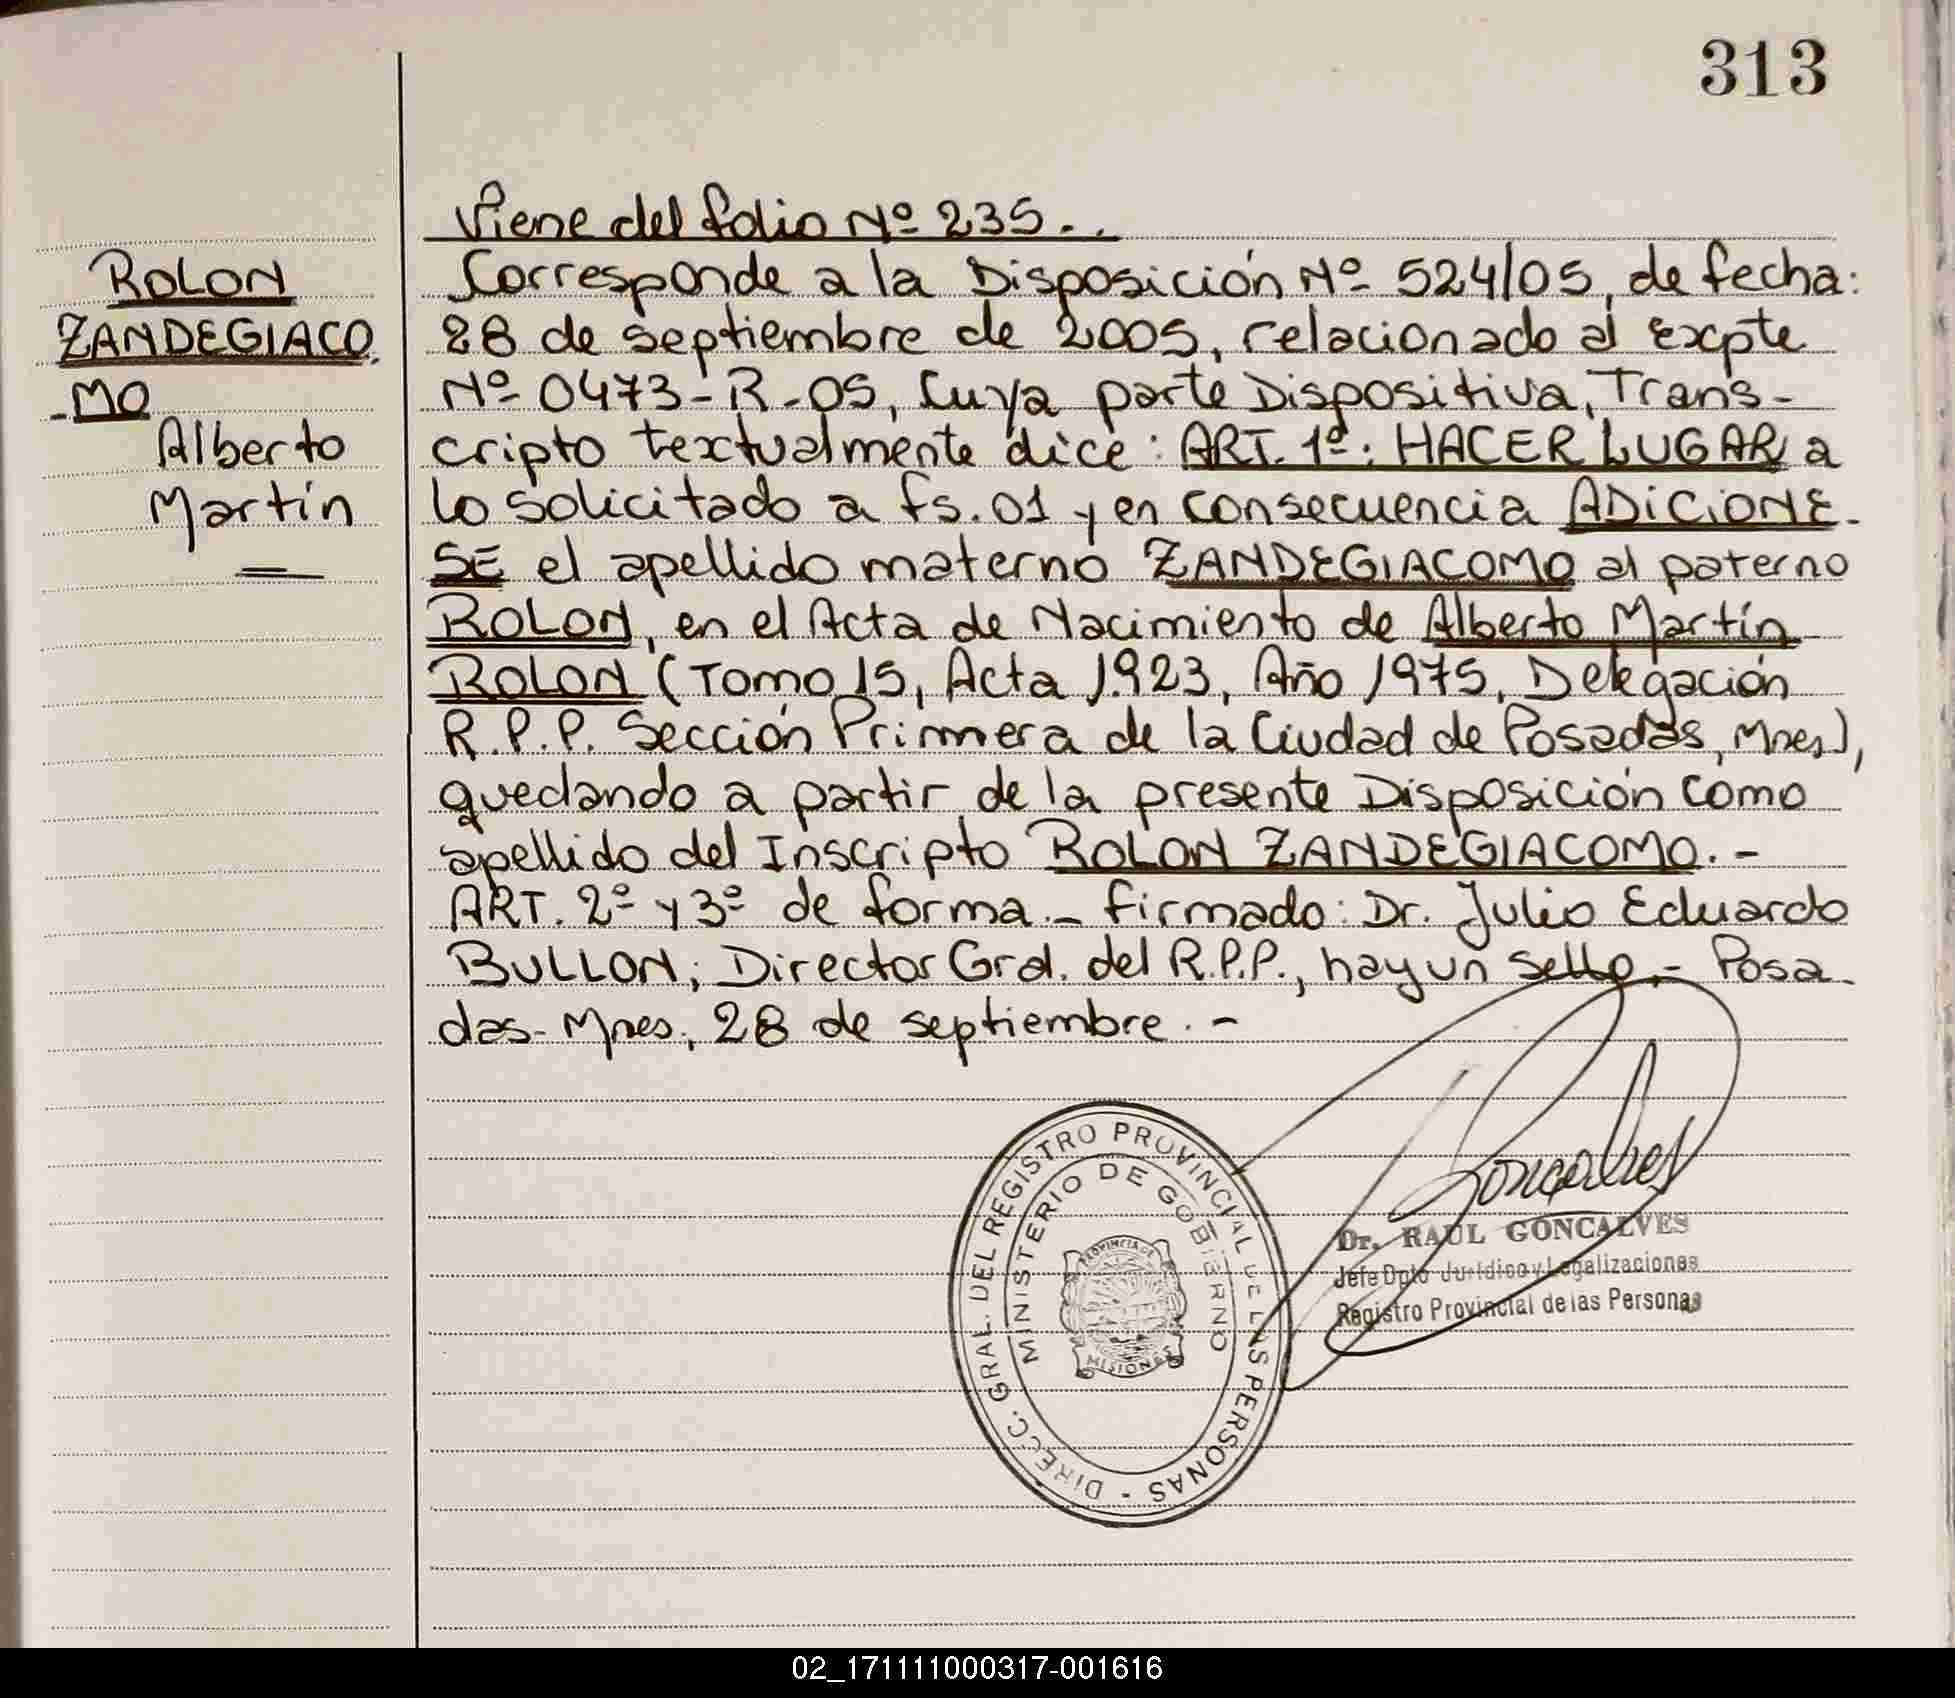 313
Viene del folio Nº 235..
ROLON
ZANDEGIACO
-MO
Alberto
Martín
Corresponde a la Disposición Nº 524/05, de fecha:
28 de septiembre de 2005, relacionado al Expte
Nº 0473-R-05, Cuya parte Dispositiva, Trans-
cripto textualmente dice: ART. 1º: HACER LUGAR a
lo solicitado a fs. 01 y en consecuencia ADICIONE-
SE el apellido materno ZANDEGIACOMO al paterno
ROLON, en el Acta de Nacimiento de Alberto Martín
ROLON (Tomo 15, Acta 1.923, Año 1975, Delegación
R.P.P. Sección Primera de la Ciudad de Posadas, Mnes),
quedando a partir de la presente Disposición como
apellido del Inscripto ROLON ZANDEGIACOMO.-
ART. 2º y 3º de forma.- firmado: Dr. Julio Eduardo
BULLON, Director Gral. del R.P.P., hay un sello.- Posa-
das- Mnes, 28 de septiembre.-
DIRECC. GRAL. DEL REGISTRO PROVINCIAL DE LAS PERSONAS -
MINISTERIO DE GOBIERNO
PROVINCIA DE
MISIONES
Goncalves
Dr. RAUL GONCALVES
Jefe Dpto Jurídico y Legalizaciones
Registro Provincial de las Personas
02_171111000317-001616